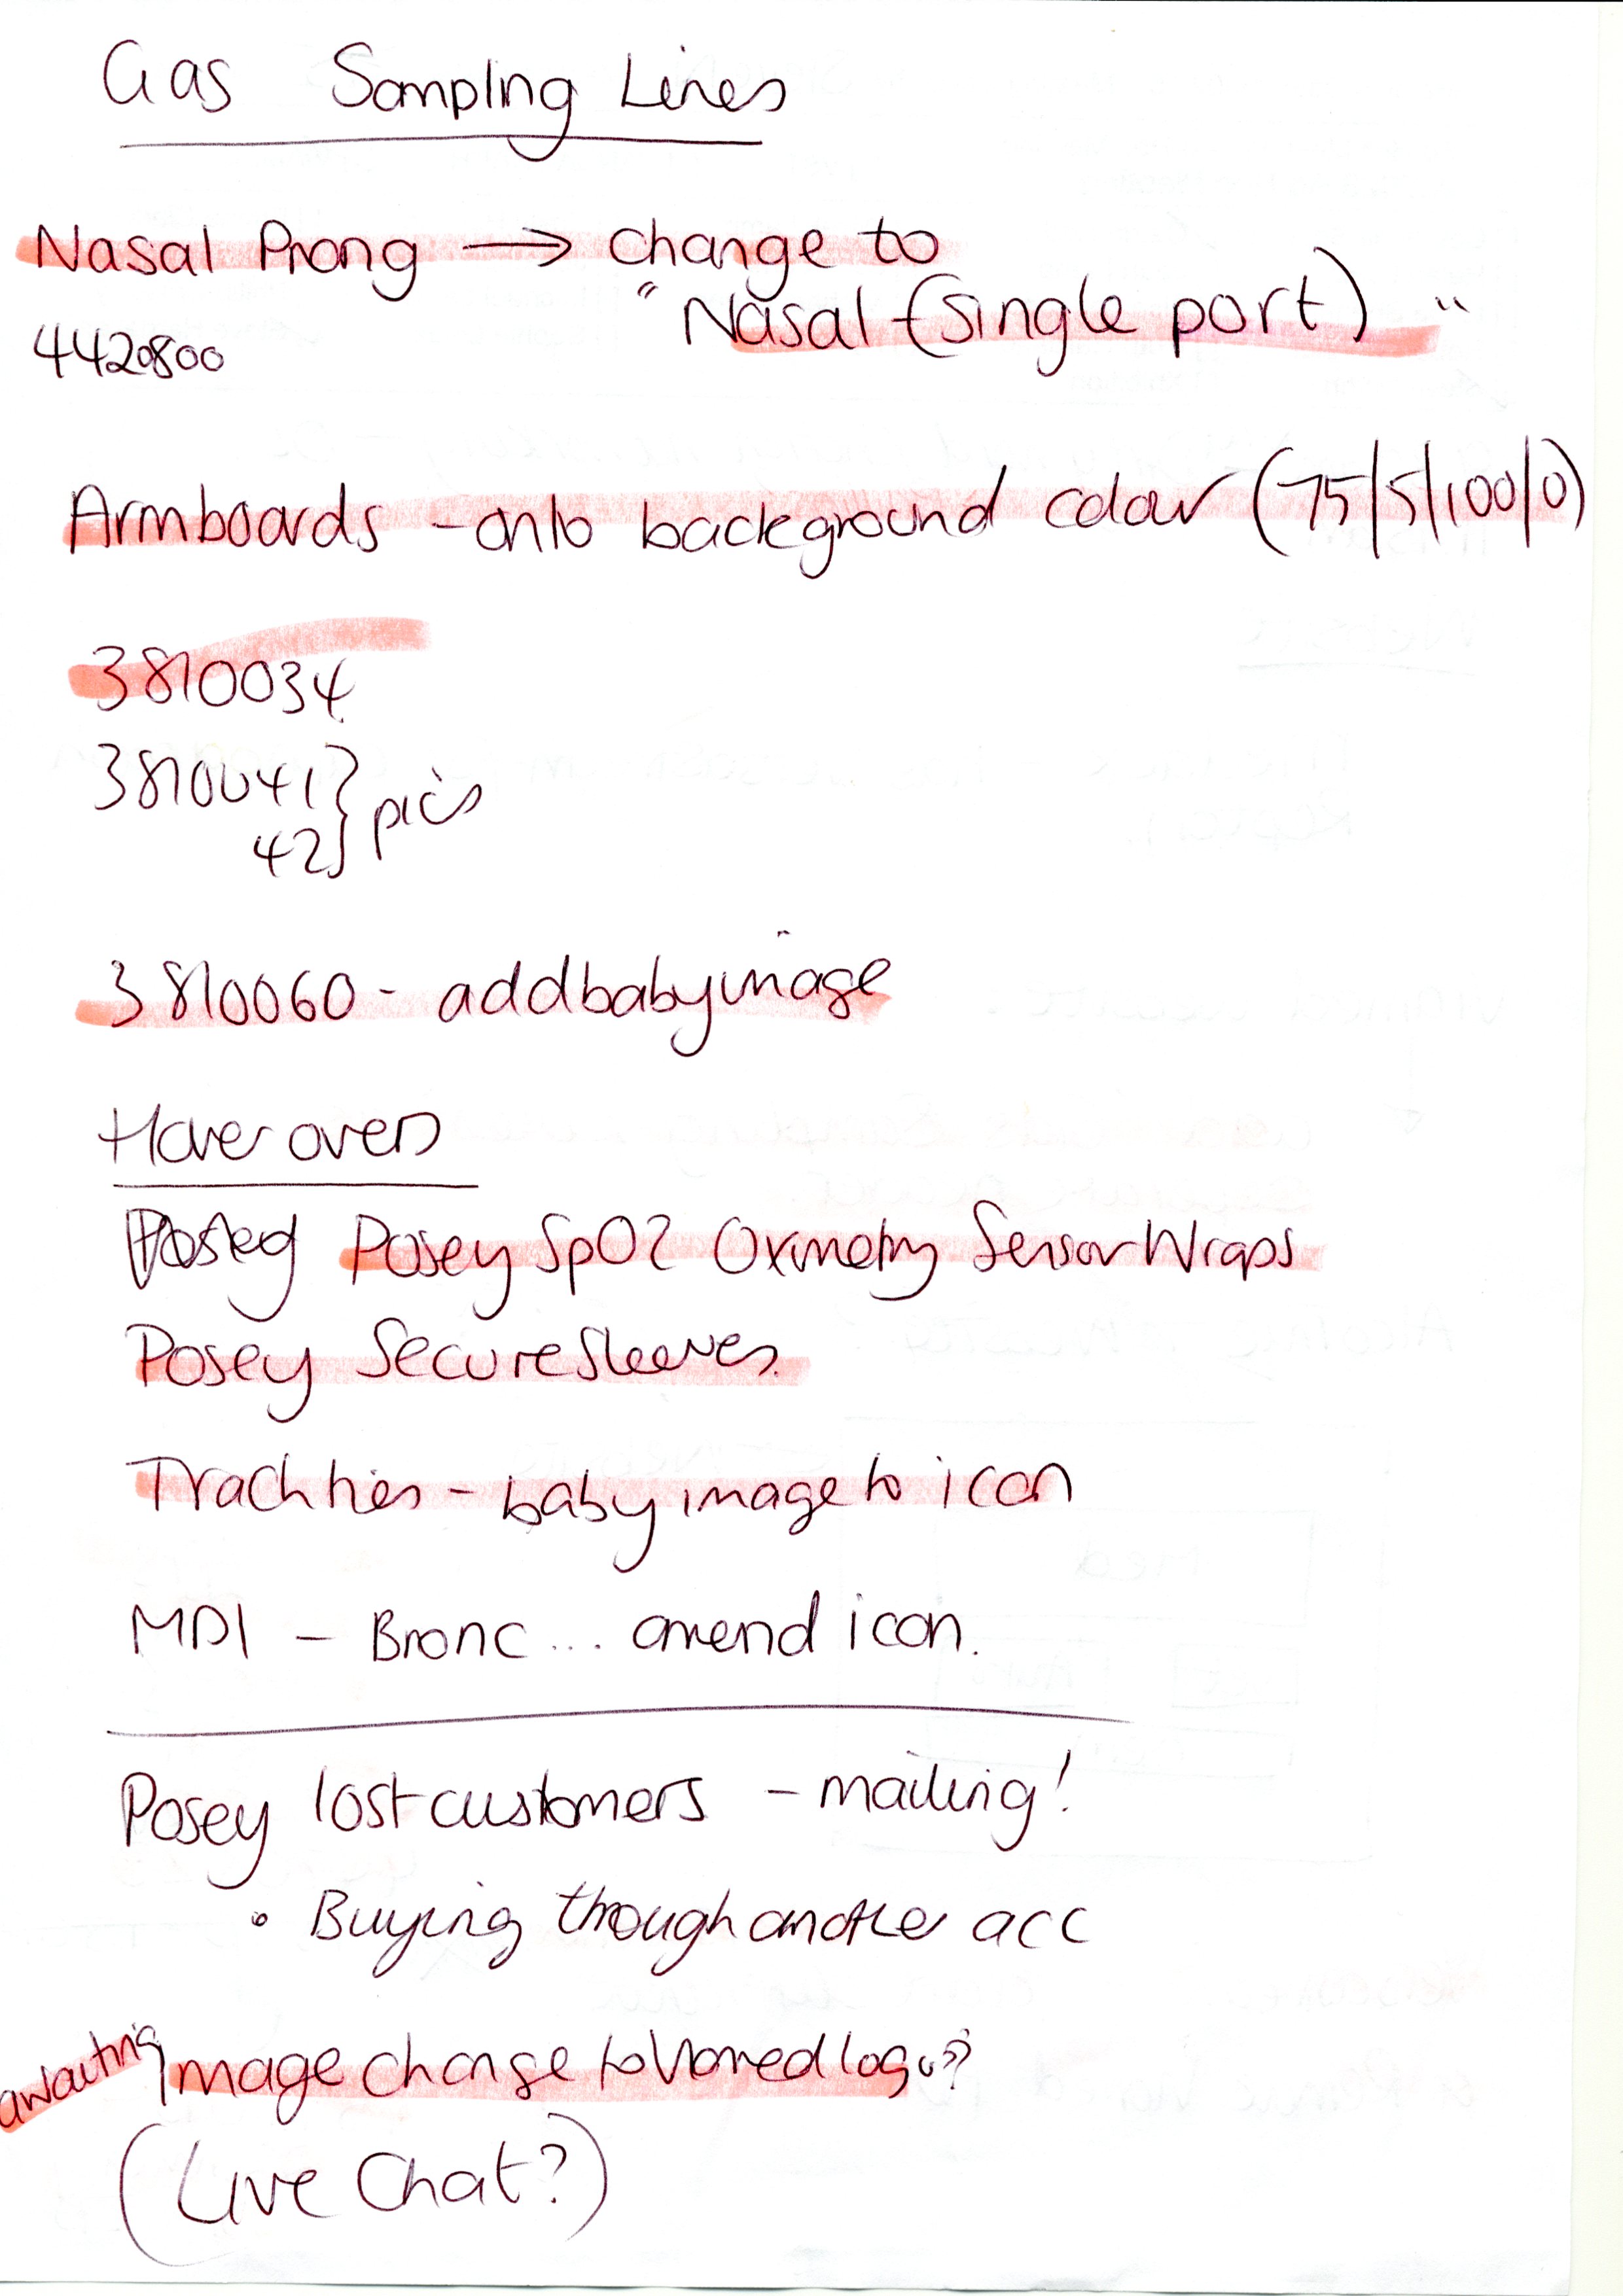 Gas Sampling Lines
Nasal Prong → change to
"Nasal (single port)"
4420800
Armboards - onto background colour (75|5|100|0)
3810034
3810041 } pics
42
3810060 - add baby image
Hover overs
Posey SpO2 Oximetry Sensor Wraps
Posey Secure Sleeves.
Trach ties - baby image to icon
MDI - Bronc... amend icon.
Posey lost customers - mailing!
• Buying through another acc
awaiting Image change to Viamed logo??
(Live Chat?)